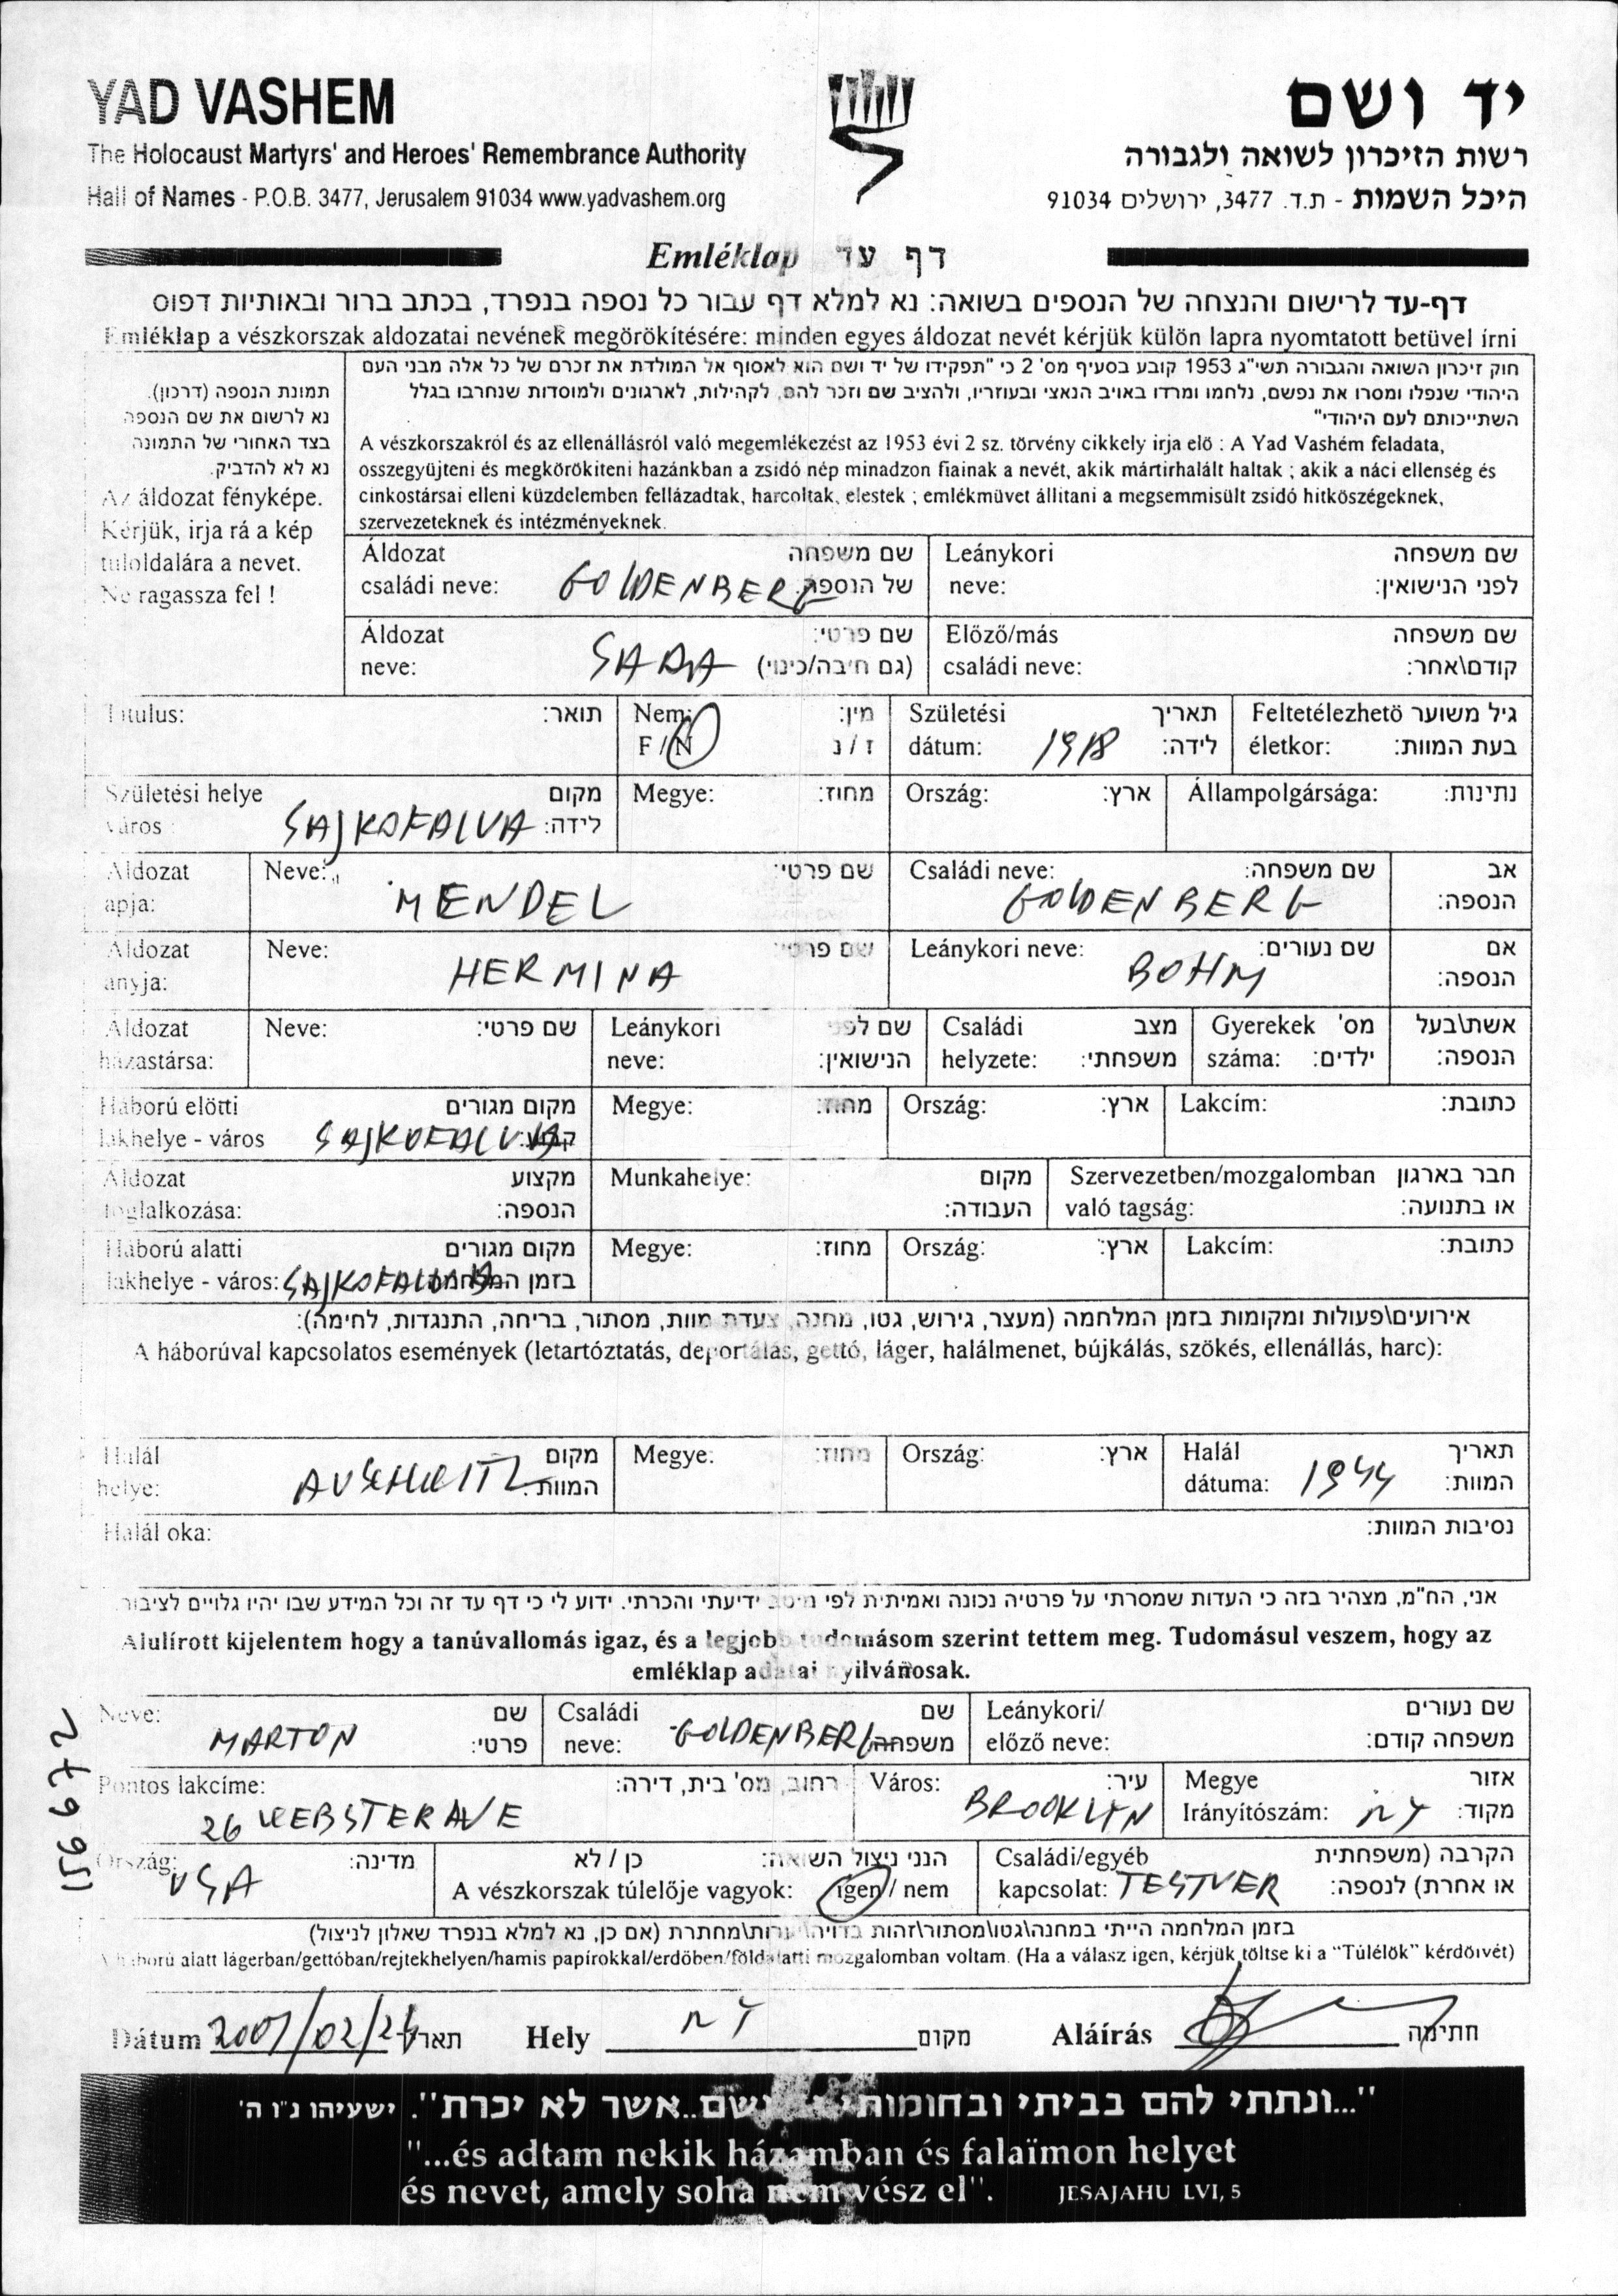 YAD VASHEM
יד ושם
The Holocaust Martyrs' and Heroes' Remembrance Authority
רשות הזיכרון לשואה ולגבורה
Hall of Names - P.O.B. 3477, Jerusalem 91034 www.yadvashem.org
היכל השמות - ת.ד. 3477, ירושלים 91034
Emléklap דף עד
דף-עד לרישום והנצחה של הנספים בשואה: נא למלא דף עבור כל נספה בנפרד, בכתב ברור ובאותיות דפוס
Emléklap a vészkorszak aldozatai nevének megörökítésére: minden egyes áldozat nevét kérjük külön lapra nyomtatott betüvel írni
חוק זיכרון השואה והגבורה תשי"ג 1953 קובע בסעיף מס' 2 כי "תפקידו של יד ושם הוא לאסוף אל המולדת את זכרם של כל אלה מבני העם
היהודי שנפלו ומסרו את נפשם, נלחמו ומרדו באויב הנאצי ובעוזריו, ולהציב שם וזכר להם, לקהילות, לארגונים ולמוסדות שנחרבו בגלל
השתייכותם לעם היהודי"
A vészkorszakról és az ellenállásról való megemlékezést az 1953 évi 2 sz. törvény cikkely irja elö : A Yad Vashém feladata,
osszegyüjteni és megkörökiteni hazánkban a zsidó nép minadzon fiainak a nevét, akik mártirhalált haltak ; akik a náci ellenség és
cinkostársai elleni küzdelemben fellázadtak, harcoltak, elestek ; emlékmüvet állitani a megsemmisült zsidó hitköszégeknek,
szervezeteknek és intézményeknek.
תמונת הנספה (דרכון).
נא לרשום את שם הנספה
בצד האחורי של התמונה
נא לא להדביק.
Az áldozat fényképe.
Kérjük, irja rá a kép
tuloldalára a nevet.
Ne ragassza fel !
Áldozat שם משפחה
családi neve: GOLDENBERG של הנספה
Leánykori שם משפחה
neve: לפני הנישואין:
Áldozat שם פרטי:
neve: SARA (גם חיבה/כינוי)
Előző/más שם משפחה
családi neve: קודם\אחר:
Titulus: תואר:
Nem: מין:
F / N ז / נ
Születési תאריך
dátum: 1918 לידה:
Feltetélezhetö גיל משוער
életkor: בעת המוות:
Születési helye מקום
város : SAJKOFALVA לידה:
Megye: מחוז:
Ország: ארץ:
Állampolgársága: נתינות:
Aldozat Neve: שם פרטי: Családi neve: שם משפחה: אב
apja: MENDEL GOLDENBERG הנספה:
Aldozat Neve: שם פרטי: Leánykori neve: שם נעורים: אם
anyja: HERMINA BOHM הנספה:
Aldozat Neve: שם פרטי: Leánykori שם לפני Családi מצב Gyerekek מס' אשת\בעל
házastársa: neve: הנישואין: helyzete: משפחתי: száma: ילדים: הנספה:
Háború elötti מקום מגורים Megye: מחוז: Ország: ארץ: Lakcím: כתובת:
lakhelye - város SAJKOFALVA קבוע:
Aldozat מקצוע Munkahelye: מקום Szervezetben/mozgalomban חבר בארגון
foglalkozása: הנספה: העבודה: való tagság: או בתנועה:
Háború alatti מקום מגורים Megye: מחוז: Ország: ארץ: Lakcím: כתובת:
lakhelye - város: SAJKOFALVA בזמן המלחמה
אירועים\פעולות ומקומות בזמן המלחמה (מעצר, גירוש, גטו, מחנה, צעדת מוות, מסתור, בריחה, התנגדות, לחימה):
A háborúval kapcsolatos események (letartóztatás, deportálás, gettó, láger, halálmenet, bújkálás, szökés, ellenállás, harc):
Halál מקום Megye: מחוז: Ország: ארץ: Halál תאריך
helye: AUSCHWITZ המוות: dátuma: 1944 המוות:
Halál oka: נסיבות המוות:
אני, הח"מ, מצהיר בזה כי העדות שמסרתי על פרטיה נכונה ואמיתית לפי מיטב ידיעתי והכרתי. ידוע לי כי דף עד זה וכל המידע שבו יהיו גלויים לציבור.
Alulírott kijelentem hogy a tanúvallomás igaz, és a legjobb tudomásom szerint tettem meg. Tudomásul veszem, hogy az
emléklap adatai nyilvánosak.
Neve: שם Családi שם Leánykori/ שם נעורים
MARTON פרטי: neve: GOLDENBERG משפחה előző neve: משפחה קודם:
Pontos lakcíme: רחוב, מס' בית, דירה: Város: עיר: Megye אזור
26 WEBSTER AVE BROOKLYN Irányítószám: NY מקוד:
Ország: מדינה: הנני ניצול השואה: כן / לא Családi/egyéb הקרבה (משפחתית
USA A vészkorszak túlelője vagyok: igen / nem kapcsolat: TESTVER או אחרת) לנספה:
בזמן המלחמה הייתי במחנה\גטו\מסתור\זהות בדויה\יערות\מחתרת (אם כן, נא למלא בנפרד שאלון לניצול)
A háború alatt lágerban/gettóban/rejtekhelyen/hamis papírokkal/erdöben/földalatti mozgalomban voltam. (Ha a válasz igen, kérjük töltse ki a "Túlélök" kérdöivét)
Dátum 2001/02/ תאריך Hely NY מקום Aláírás חתימה
"...ונתתי להם בביתי ובחומותי יד ושם..אשר לא יכרת". ישעיהו נ"ו ה'
"...és adtam nekik házamban és falaïmon helyet
és nevet, amely soha nem vész el". JESAJAHU LVI, 5